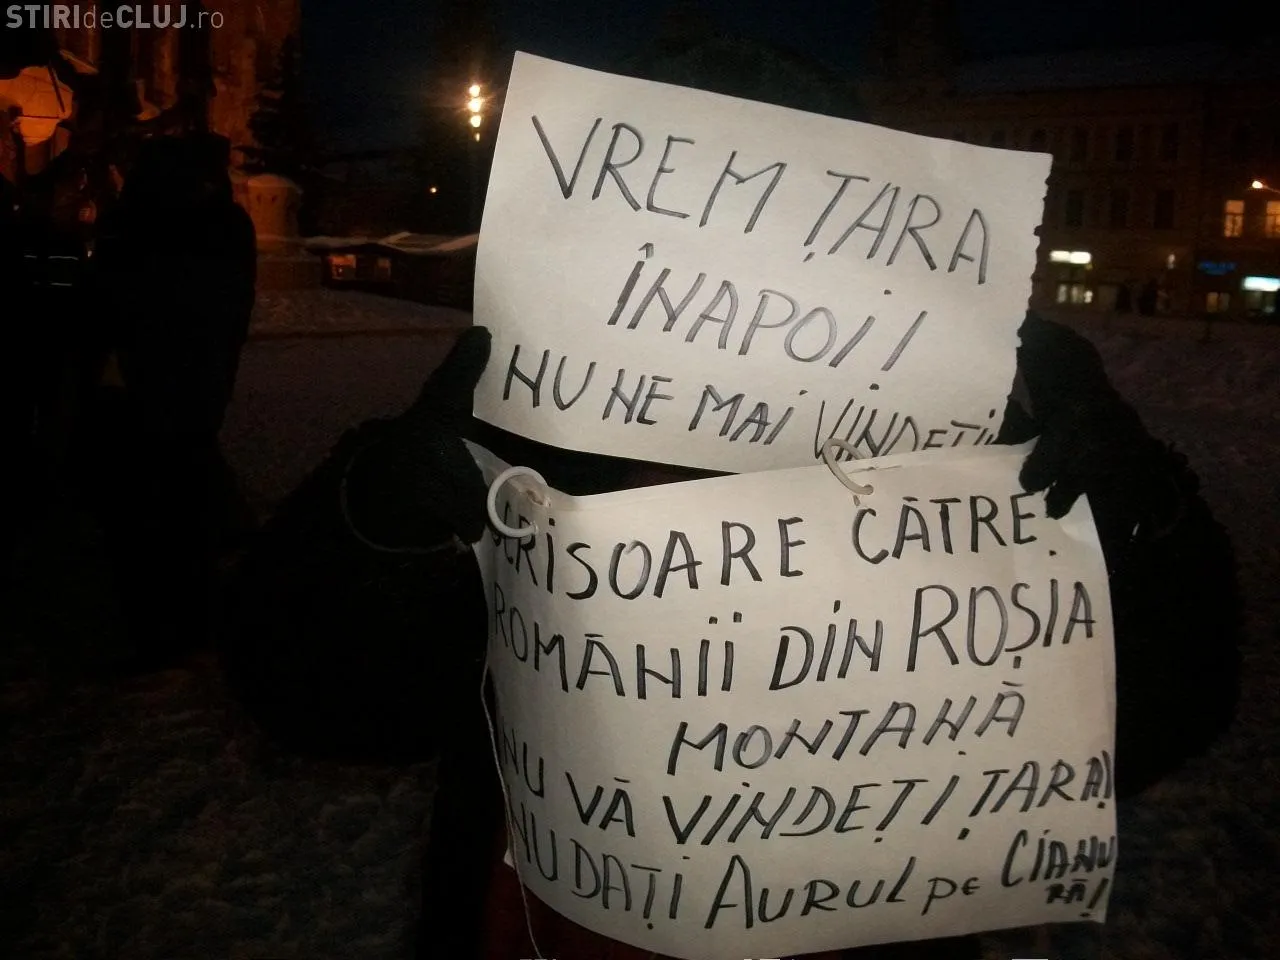 STIRIdeCLUJ.ro
VREM ȚARA
ÎNAPOI!
NU NE MAI VINDEȚI
SCRISOARE CĂTRE
ROMÂNII DIN ROȘIA
MONTANĂ
NU VĂ VINDEȚI ȚARA!
NU DAȚI AURUL PE CIANU
RĂ!